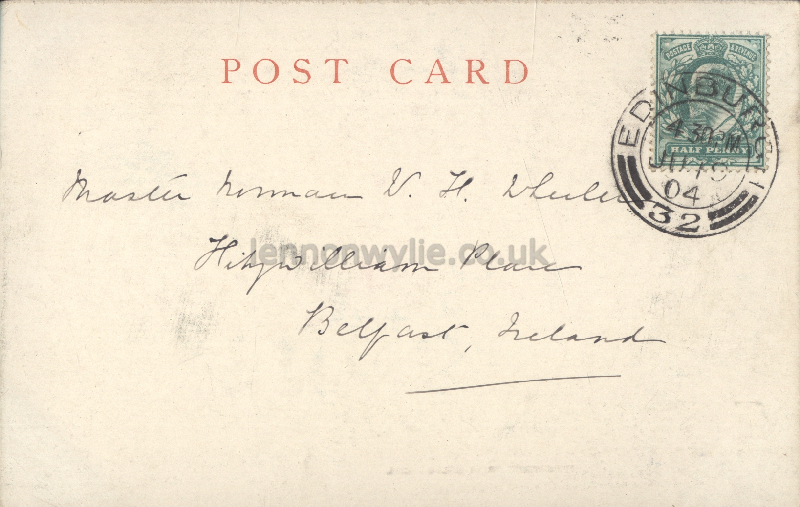 POST CARD
POSTAGE & REVENUE
HALF PENNY
EDINBURGH
4.30PM
04
32
Master Norman W. H. Wheeler
Fitzwilliam Place
Belfast, Ireland
lennonwylie.co.uk